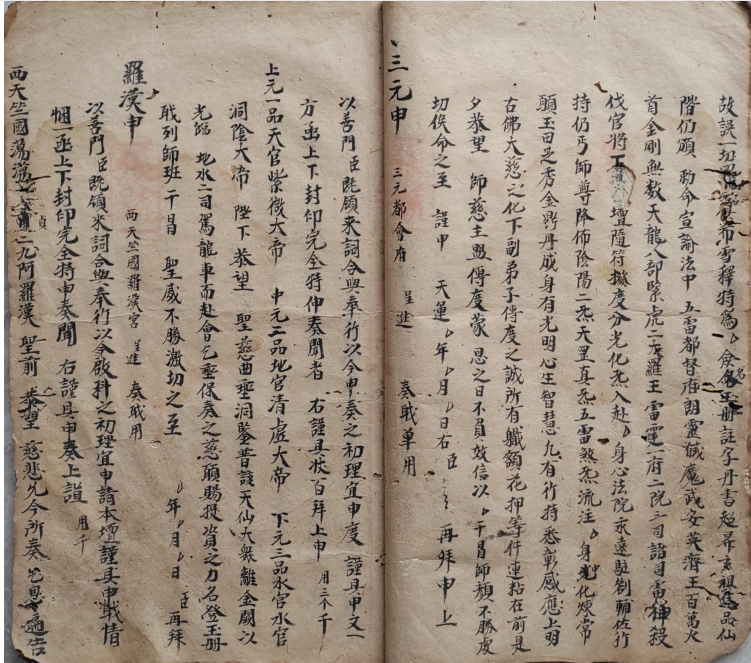 故誤一切罪愆希雪釋特為 玉册註字丹書超昇玄祖品仙
階仍頒勅命宣諭法中 五雷都督府朗靈馘魔武安英濟王百萬火
首金剛無数天龍八部黑虎二 羅王雷霆一府二院三司諸司雷神投
伐官將 壇隨符撥度分光化炁入赴 身心法院永遠駐劄輔佐行
持仍丐師尊降佈陰陽二炁天罡真炁五雷煞炁流注 身 化煉常
願玉田足秀金鼎丹成身有光明心生智慧凡有行持悉彰感應上明
古佛大慈之化下副弟子傳度之誠所有職額花押等件連粘在前是
夕恭望 師慈主盟傳度蒙 恩之日不負效信以 干冒師顏不勝虔
切俟命之至 謹申 天運 年 月 日右臣 再拜申上
三元申 三元都會府 呈進 奏職單用
以善門臣既領來詞合與奉行以今申奏之初理宜申度 謹具申文一
方函上下封印完全特伸奏聞者 右謹具狀百拜上申 用三个千
上元一品天官紫微大帝 中元二品地官清虛大帝 下元三品水官水官
洞陰大帝 陛下恭望 聖慈曲垂洞鑒普該天仙大衆離金闕以
光臨 地水二司駕龍車而赴會乞垂保奏之慈願賜提資之力名登玉册
職列師班干冒 聖威不勝激切之至 年 月 日 臣 再拜
羅漢申 西天竺國羅漢宮 呈進 奏職用
以善門臣既領來詞合與奉行以今啟科之初理宜申請本壇謹具申職情
悃一函上下封印完全特申奏聞 右謹具申奏上詣 用千
西天竺國 九阿羅漢 聖前 恭望 慈悲允今所奏 通告